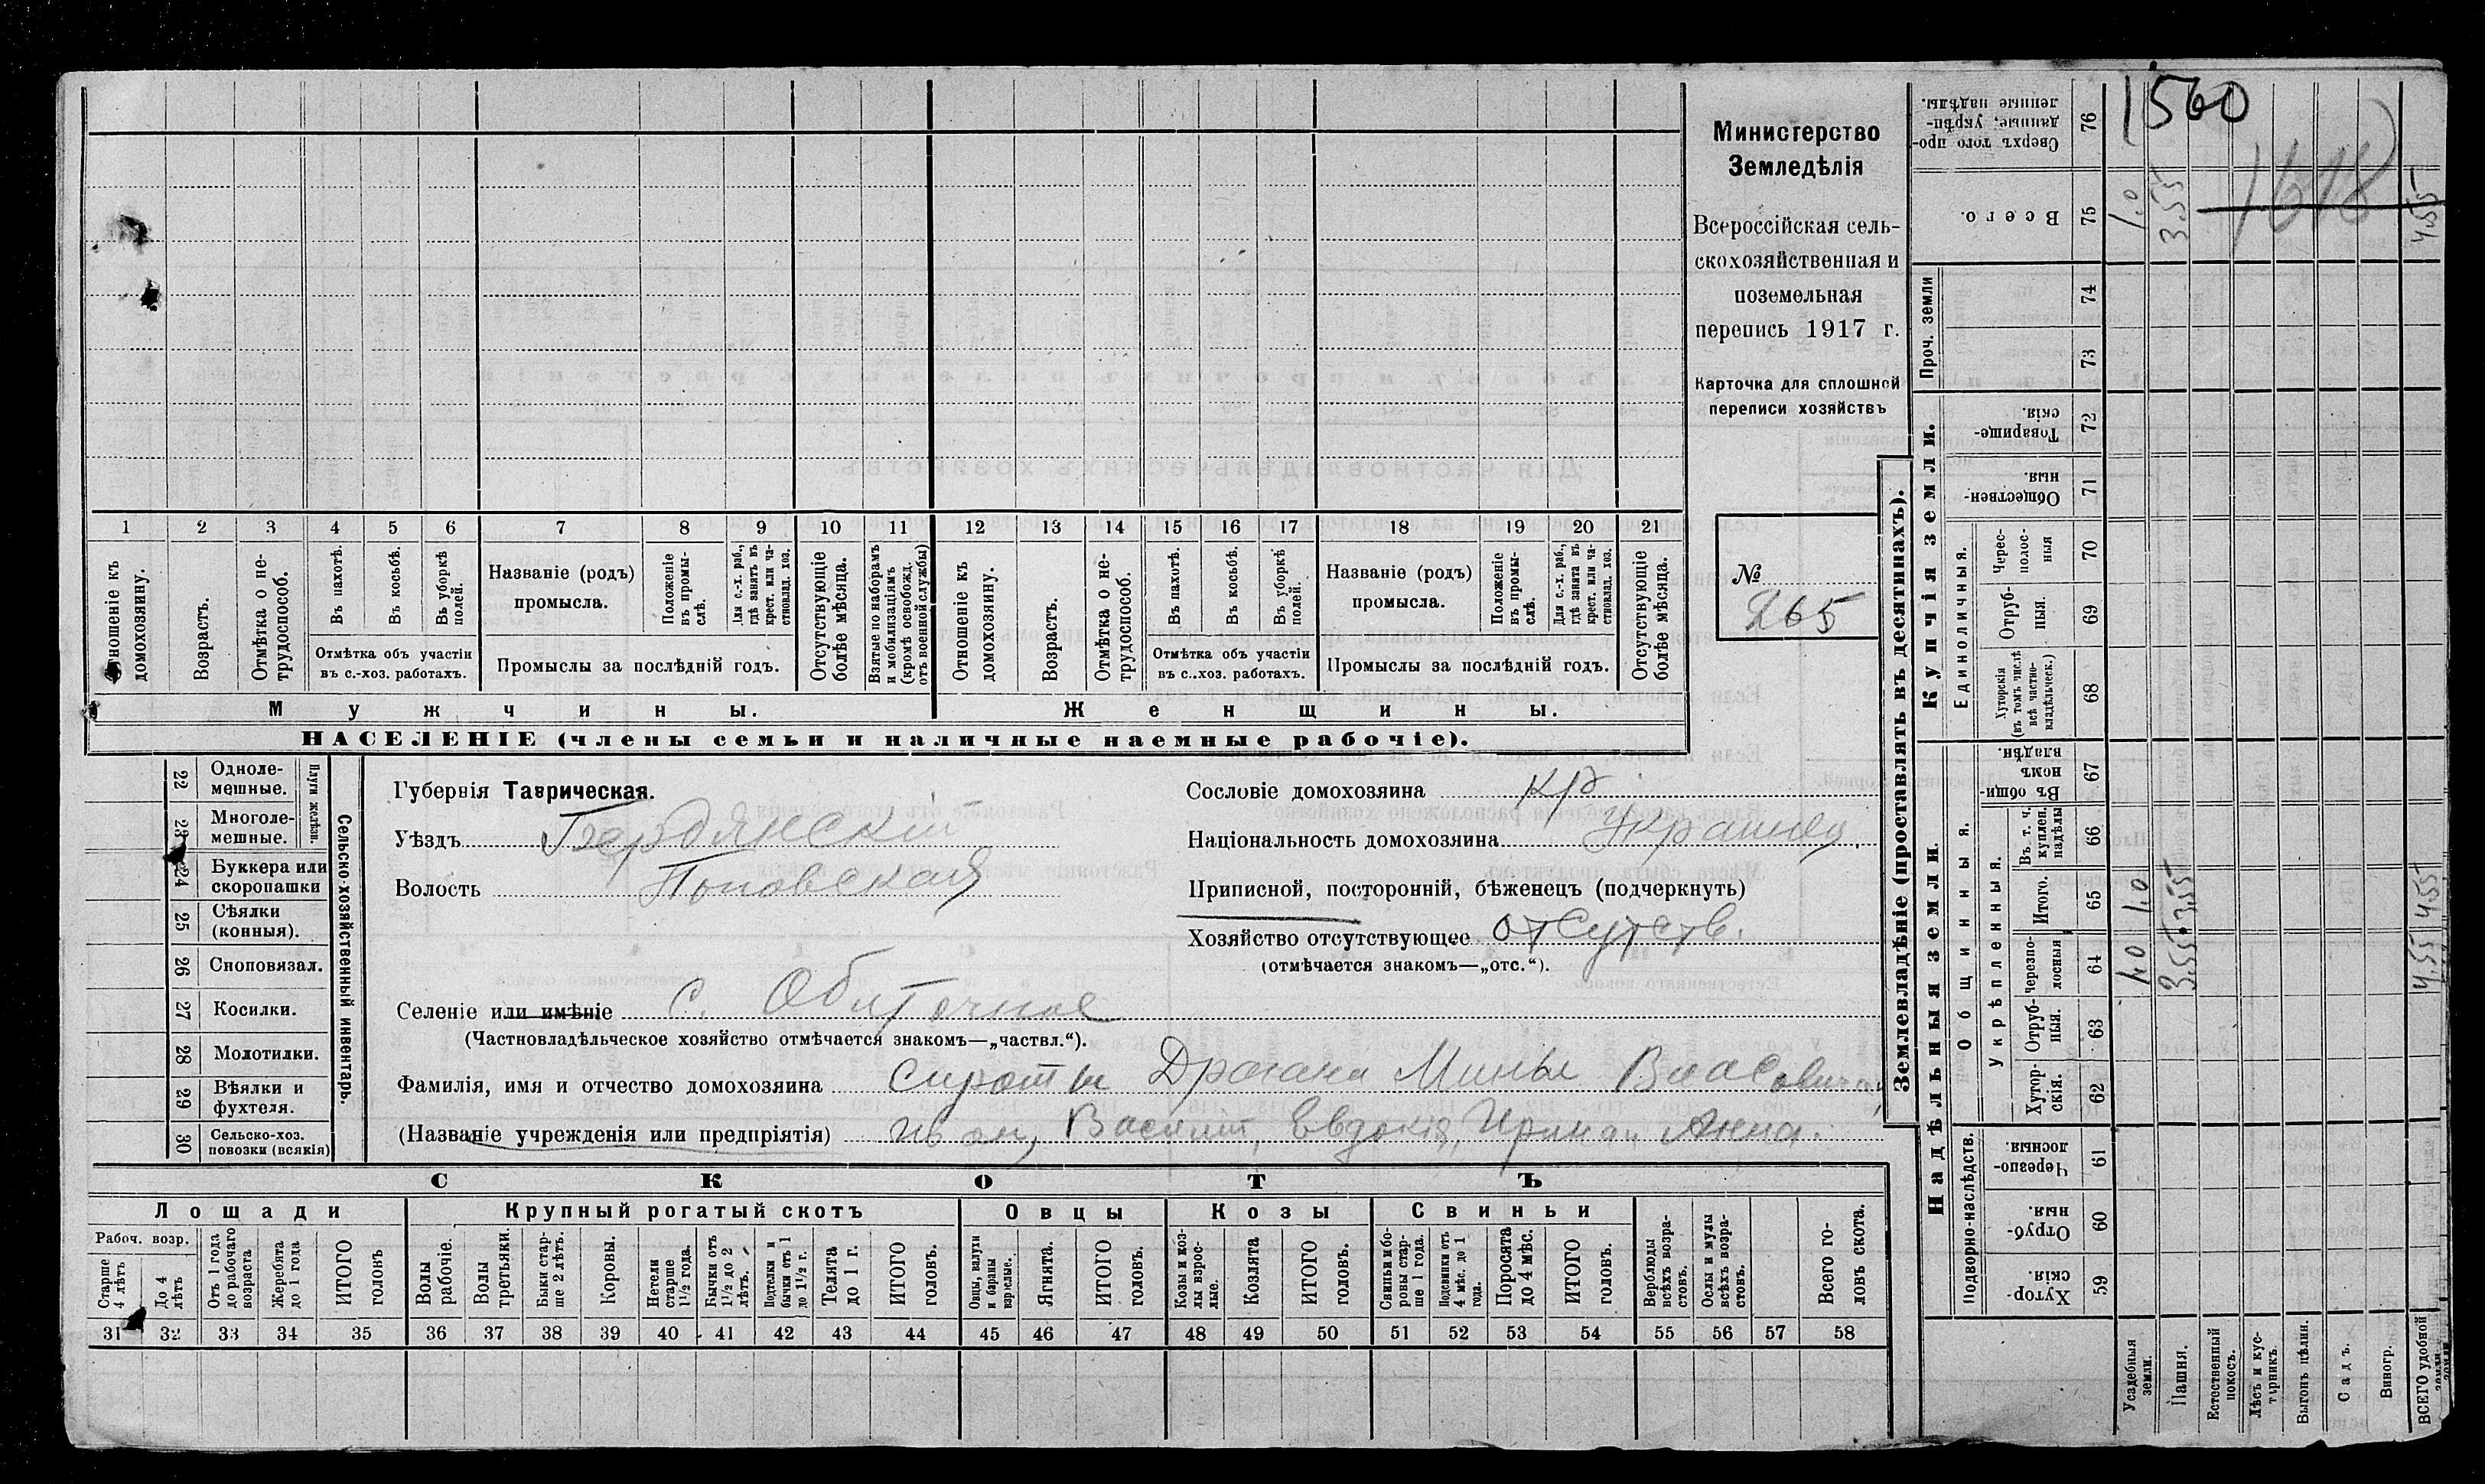 1 2 3 4 5 6 7 8 9 10 11 12 13 14 15 16 17 18 19 20 21
домохозяину.
Возрастъ.
Отмѣтка о не-
трудоспособ.
Въ пахотѣ.
Въ косьбѣ.
Въ уборкѣ
полей.
Отмѣтка объ участіи
въ с.-хоз. работахъ.
Названіе (родъ)
промысла.
Положеніе
въ промы-
слѣ.
Для с.-х. раб.,
гдѣ занятъ въ
крест. или ча-
стновлад. хоз.
Промыслы за послѣдній годъ.
Отсутствующіе
болѣе мѣсяца.
Взятые по наборамъ
и мобилизаціямъ
(кромѣ освобожд.
отъ военной службы)
Отношеніе къ
домохозяину.
Возрастъ.
Отмѣтка о не-
трудоспособ.
Въ пахотѣ.
Въ косьбѣ.
Въ уборкѣ
полей.
Отмѣтка объ участіи
въ с.-хоз. работахъ.
Названіе (родъ)
промысла.
Положеніе
въ промы-
слѣ.
Для с.-х. раб.,
гдѣ занята въ
крест. или ча-
стновлад. хоз.
Промыслы за послѣдній годъ.
Отсутствующіе
болѣе мѣсяца.
Мужчины.
Женщины.
НАСЕЛЕНІЕ (члены семьи и наличные наемные рабочіе).
Министерство
Земледѣлія
Всероссійская сель-
скохозяйственная и
поземельная
перепись 1917 г.
Карточка для сплошной
переписи хозяйствъ
№
265
22 Одноле-
мешные.
23 Многоле-
мешные.
Плуги желѣзн.
24 Буккера или
скоропашки
25 Сѣялки
(конныя).
26 Сноповязал.
27 Косилки.
28 Молотилки.
29 Вѣялки и
фухтеля.
30 Сельско-хоз.
повозки (всякія)
Сельско-хозяйственный инвентарь.
Губернія Таврическая.
Уѣздъ Бердянскій
Волость Поповская
Сословіе домохозяина кр
Національность домохозяина Украинец
Приписной, посторонній, бѣженецъ (подчеркнуть)
Хозяйство отсутствующее отсутств.
(отмѣчается знакомъ—„отс.“).
Селеніе или имѣніе с. Обиточное
(Частновладѣльческое хозяйство отмѣчается знакомъ—„частвл.“).
Фамилія, имя и отчество домохозяина Сироты Драгана Мины Власовича
(Названіе учрежденія или предпріятія) Иван, Василій, Евдокія, Ирина и Анна.
СКОТЪ
Лошади
Крупный рогатый скотъ
Овцы
Козы
Свиньи
Рабоч. возр.
Старше
4 лѣтъ
До 4
лѣтъ
Отъ 1 года
до рабочаго
возраста
Жеребята
до 1 года
ИТОГО
головъ
Волы
рабочіе.
Волы
третьяки.
Быки стар-
ше 2 лѣтъ.
Коровы.
Нетели
старше
1½ года.
Бычки отъ
1½ до 2
лѣтъ.
Подтелки и
бычки отъ 1
до 1½ г.
Телята
до 1 г.
ИТОГО
головъ.
Овцы, валухи
и бараны
взрослые.
Ягнята.
ИТОГО
головъ.
Козы и коз-
лы взрос-
лые.
Козлята
ИТОГО
головъ.
Свиньи и бо-
ровы стар-
ше 1 года.
Подсвинки отъ
4 мѣс. до 1
года.
Поросята
до 4 мѣс.
ИТОГО
головъ.
Верблюды
всѣхъ возра-
стовъ.
Ослы и мулы
всѣхъ возра-
стовъ.
Всего го-
ловъ скота.
31 32 33 34 35 36 37 38 39 40 41 42 43 44 45 46 47 48 49 50 51 52 53 54 55 56 57 58
Землевладѣніе (проставлять въ десятинахъ).
Купчія земли.
Надѣльныя земли.
Сверхъ того про-
данные, укрѣп-
ленные надѣлы.
76
1560
1618
Всего.
75
1.0
3.55
4.55
Проч. земли
74
73
Товарище-
скія.
72
Обществен-
ныя.
71
Единоличныя.
Черес-
полос-
ныя
70
Отруб-
ныя.
69
Хуторскія
(въ томъ числѣ
всѣ частно-
владѣльческ.)
68
Въ общин-
номъ
владѣн.
67
Общинныя.
Укрѣпленныя.
Въ т. ч.
куплен.
надѣлы
66
Итого.
65
1.0
3.55
4.55
Черезпо-
лосныя
64
1.0
3.55
4.55
Отруб-
ныя.
63
Хутор-
скія.
62
Подворно-наслѣдств.
Черезпо-
лосныя
61
Отруб-
ныя.
60
Хутор-
скія.
59
Усадебныя
земли.
Пашня.
Естественный
покосъ.
Лѣсъ и кус-
тарникъ.
Выгонъ цѣлин.
Садъ.
Виногр.
ВСЕГО удобной
земли